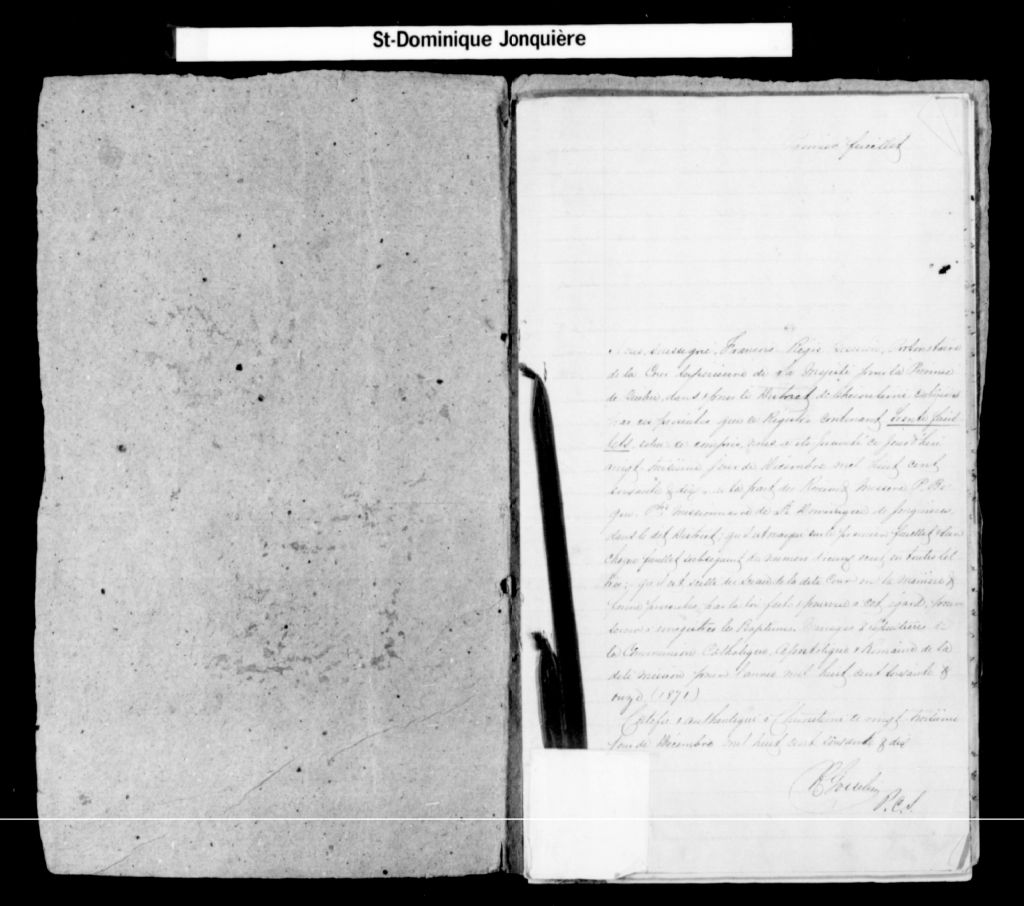 St-Dominique Jonquière
Premier feuillet
soussigné, François Régis Gosselin, Protonotaire
de la Cour Supérieure de Sa Majesté pour la Province
de Québec, dans & pour le District de Chicoutimi
que ce présent Registre contenant Trente feuil
lets, celui-ci compris, nous a été présenté ce jourd'hui
vingt troisième jour de Décembre mil huit cent
soixante & dix de la part du Révérend Messire P.
Ptre missionnaire de St Dominique de Jonquières
dans le dit District, qu'il est marqué sur le premier feuillet & sur
chaque feuillet subséquent du numero d'iceux écrit en toutes let
tres; qu'il est scellé du Sceau de la dite Cour en la manière &
forme prescrites par la loi faite & pourvue à cet égard, pour
servir à enregistrer les Baptêmes, Mariages & sépultures de
la Communion Catholique, Apostolique & Romaine de la
dite mission pour l'année mil huit cent soixante &
onze (1871)
Certifié & authentiqué à Chicoutimi ce vingt troisième
jour de Décembre mil huit cent soixante & dix
Gosselin
P.C.S.